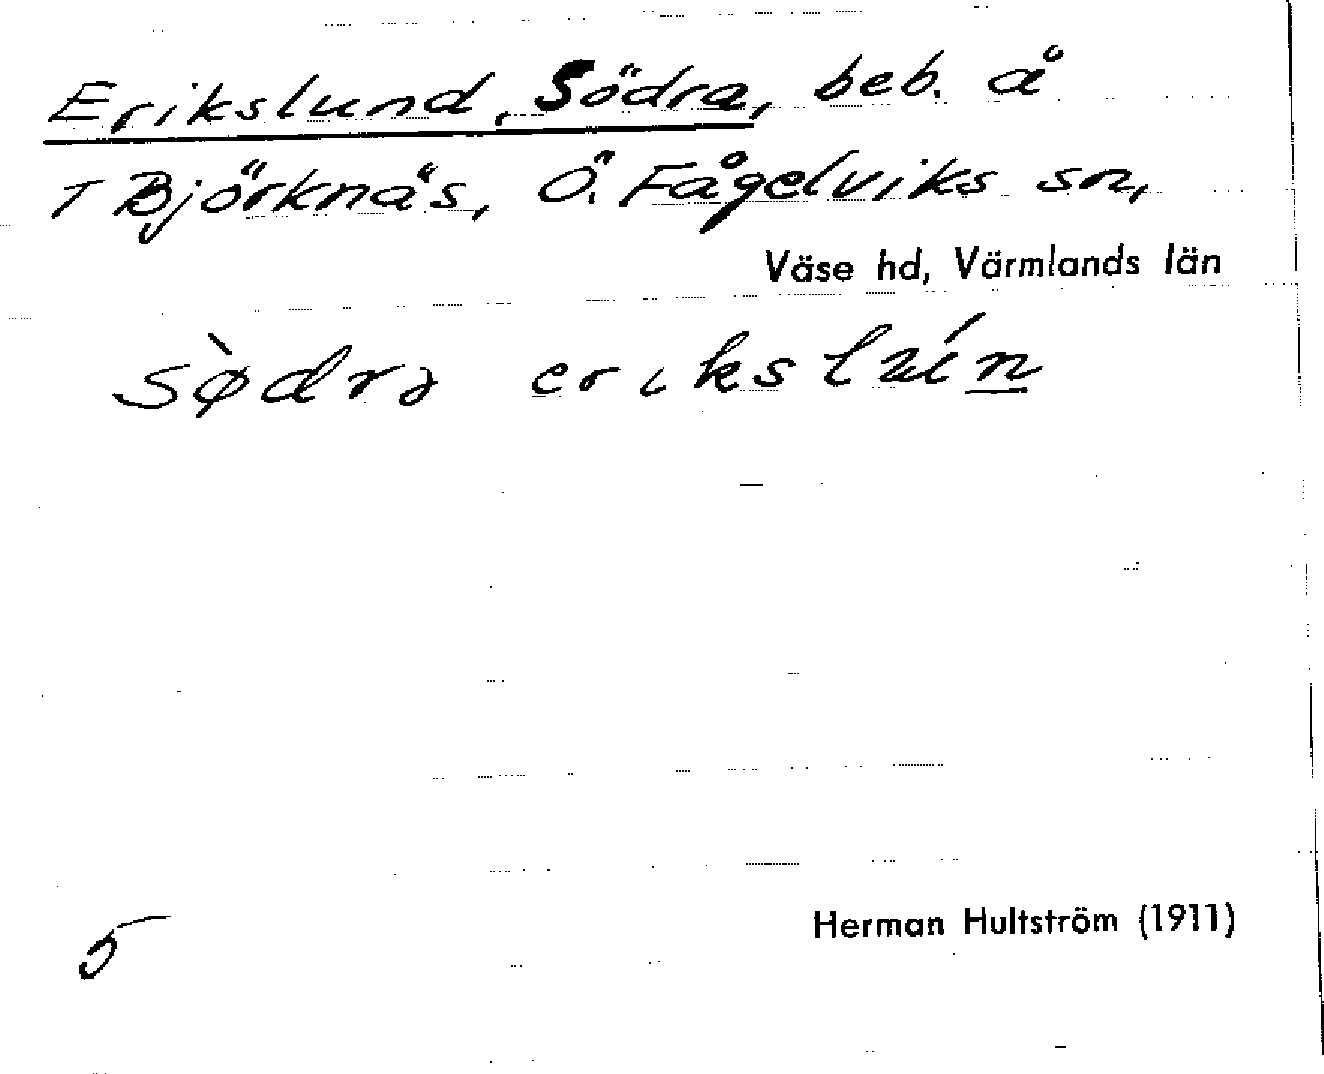 Erikslund, Södra, beb. å
T Björknäs, Ö. Fågelviks sn,
Väse hd, Värmlands län
Herman Hultström (1911)
5